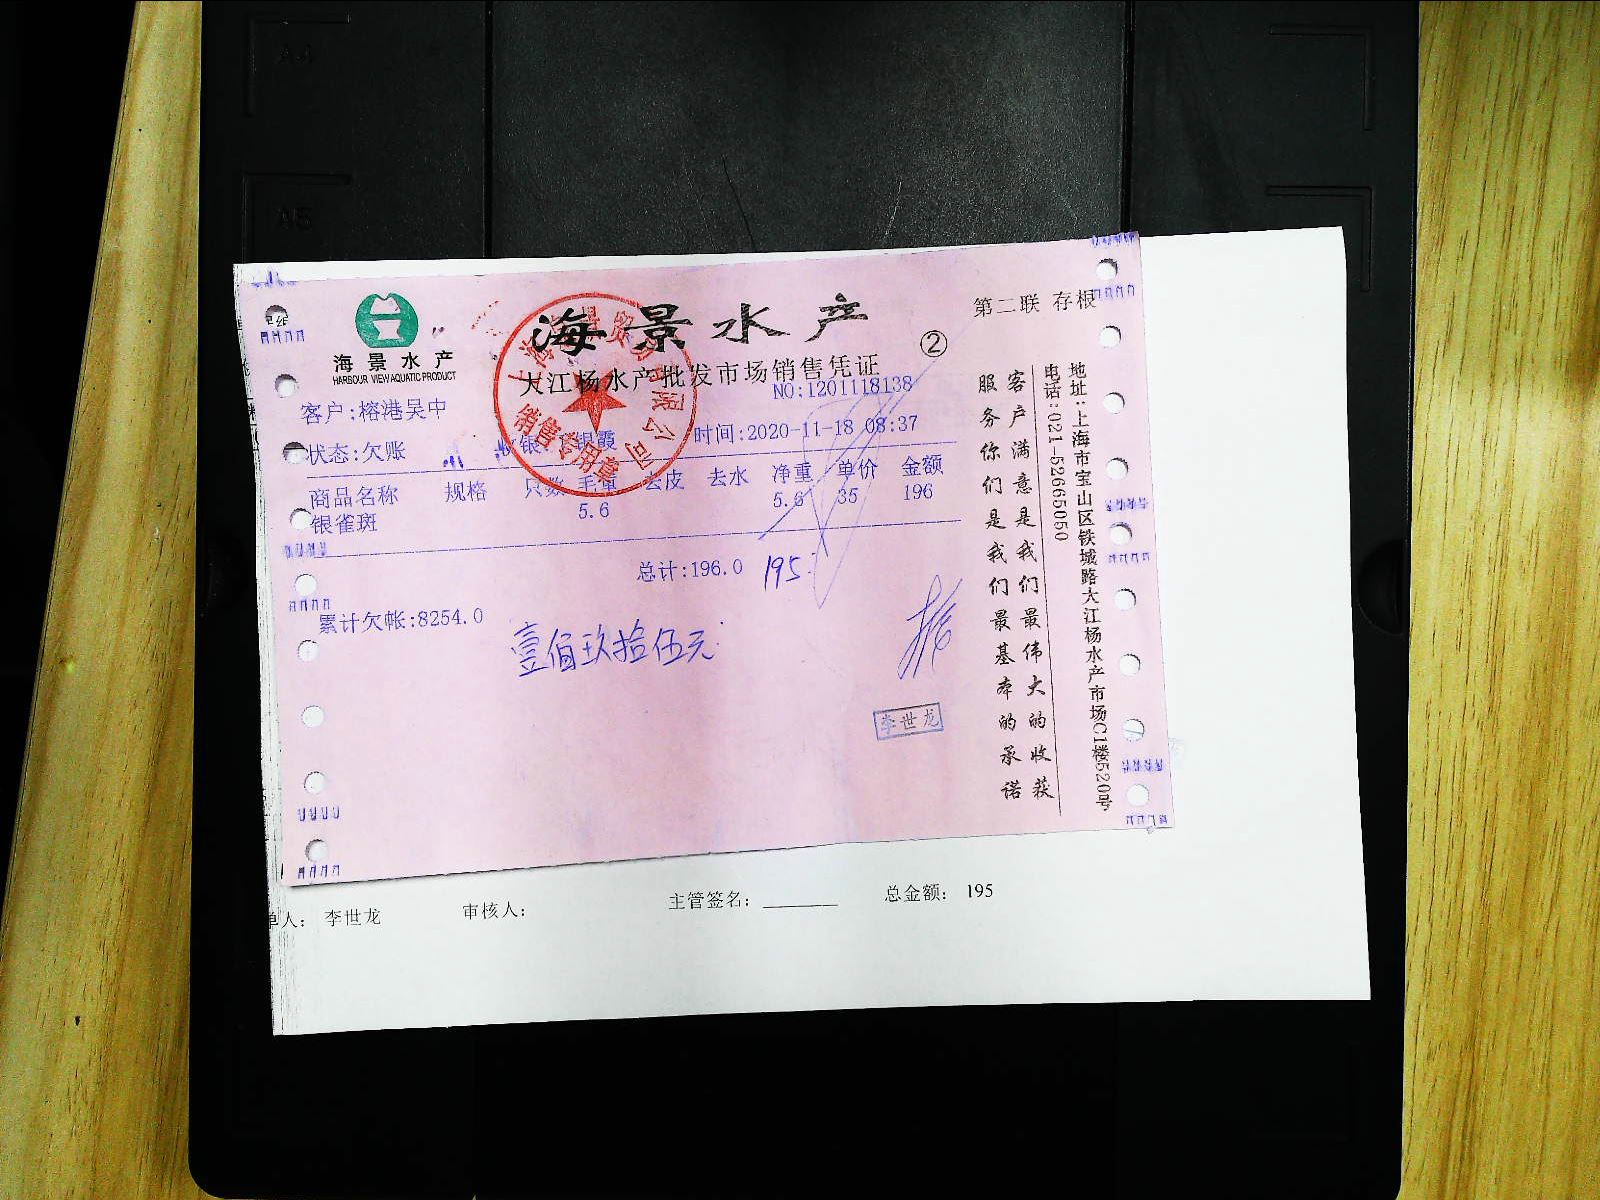 海景水产
HARBOUR VIEW AQUATIC PRODUCT
海景水产
第二联 存根
②
大江杨水产批发市场销售凭证
NO:1201118138
客户:榕港吴中
状态:欠账
时间:2020-11-18 08:37
商品名称 规格 只数 毛重 去皮 去水 净重 单价 金额
银雀斑 5.6 5.6 35 196
总计:196.0 195
累计欠帐:8254.0
壹佰玖拾伍元
李世龙
销售专用章
客户满意是我们最伟大的收获
服务你们是我们最基本的承诺
地址:上海市宝山区铁城路大江杨水产市场C1楼520号
电话:021-52665050
单人: 李世龙 审核人: 主管签名: 总金额: 195
A4
A5